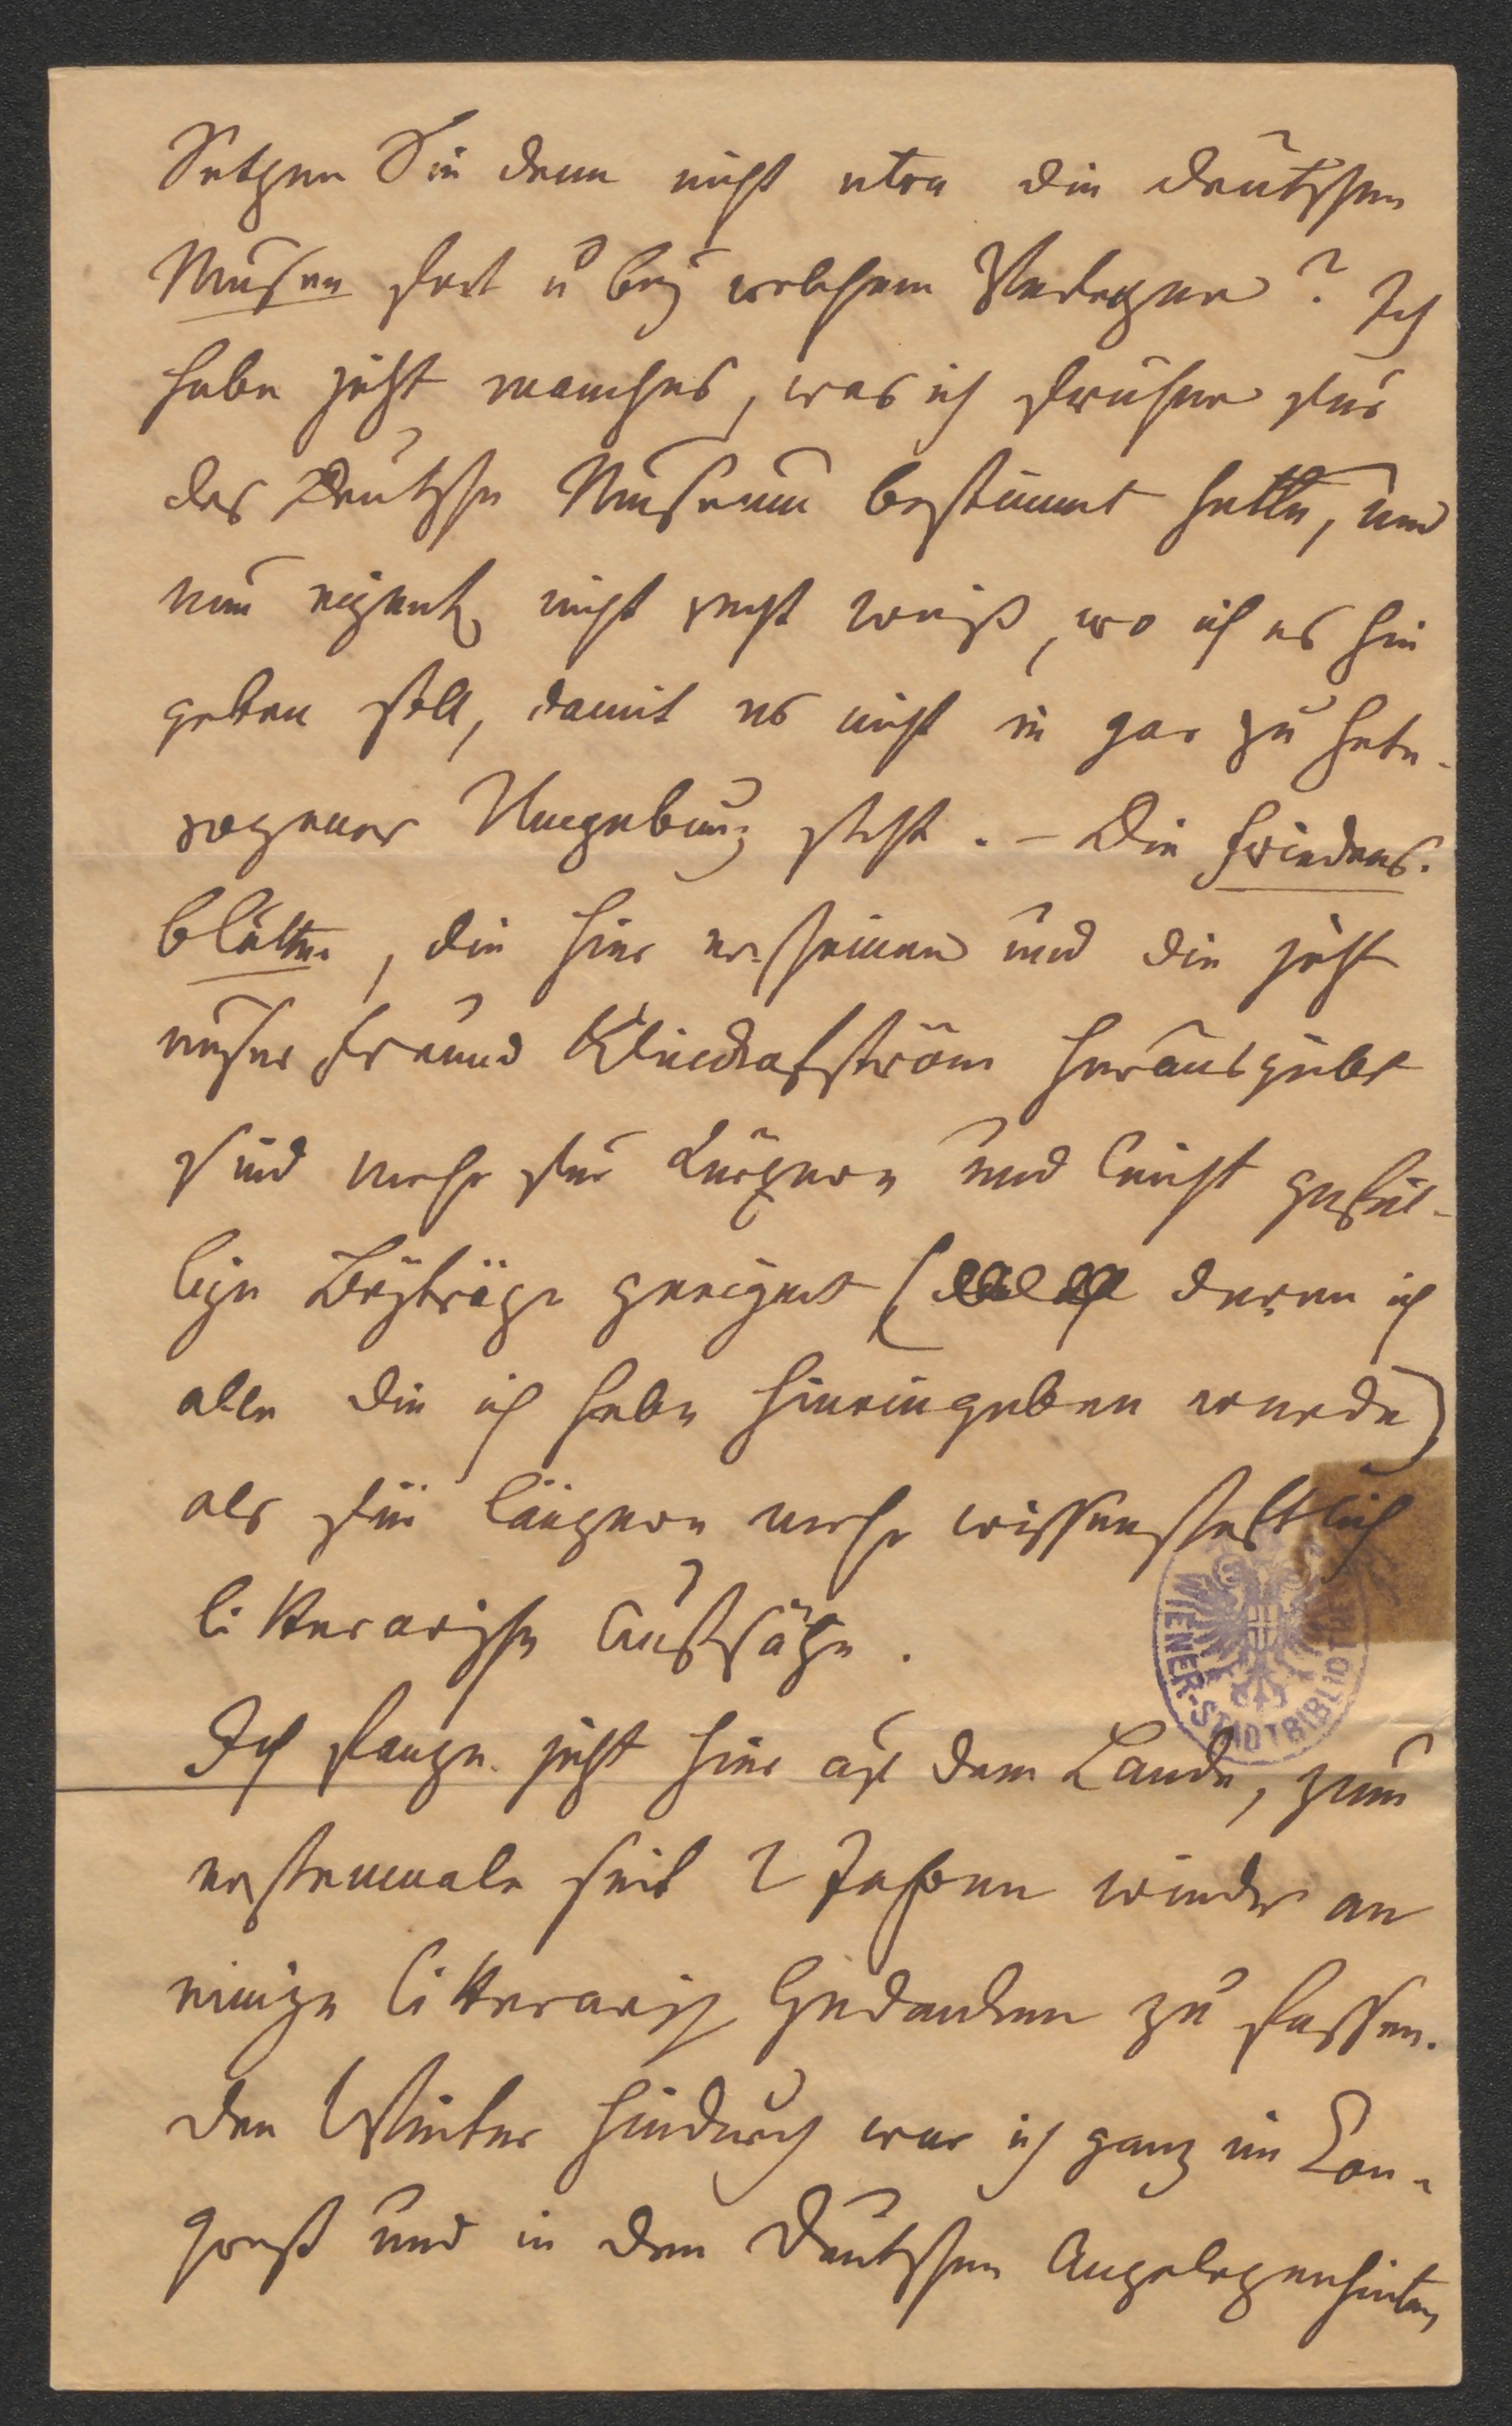 Setzen Sie denn nicht etwa die deutschen
Musen fort u bey welchem Verleger? Ich
habe jetzt manches, was ich früher für
das Deutsche Museum bestimmt hatte, und
nun eigentl nicht recht weiß, wo ich es hin
geben soll, damit es nicht in gar zu hete-
rogener Umgebung steht. – Die Friedens-
blätter, die hier erscheinen und die jetzt
unser Freund Klinckofström herausgiebt
sind mehr für kürzere und leicht gefäl-
lige Beyträge geeignet (deren ich
alle die ich habe hineingeben werde)
als für längere mehr wissenschaftlich
litterarische Aufsätze.
Ich fange jetzt hier auf dem Lande, zum
erstenmale seit 2 Jahren wieder an
einige litterarisch Gedanken zu fassen.
Den Winter hindurch war ich ganz im Con-
greß und in den deutschen Angelegenheiten
WIENER-STADTBIBLIOTHEK